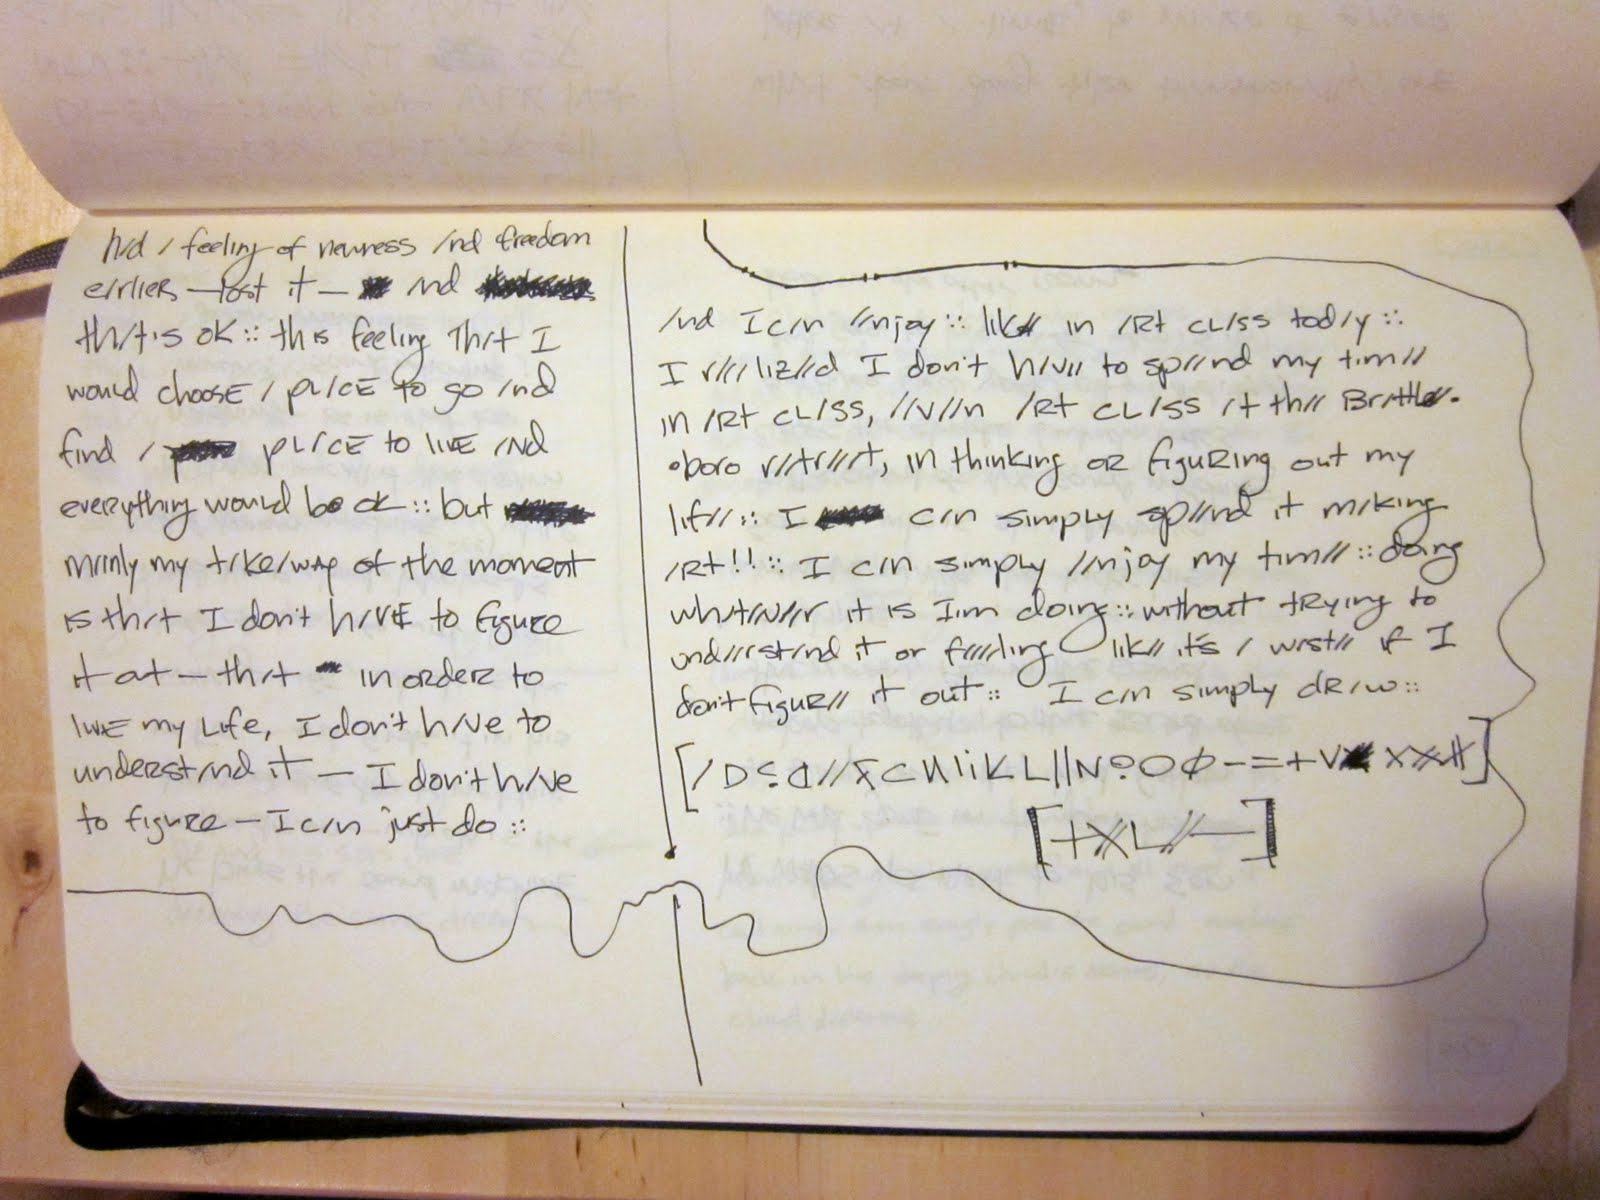 h/d / feeling of newness /nd freedom
e/rlier — lost it — /nd
th/t's ok :: this feeling Th/t I
would choose / pl/ce to go /nd
find / pl/ce to live /nd
everything would be ok :: but
m/inly my t/ke/w/y of the moment
is th/t I don't h/ve to figure
it out — th/t in order to
live my life, I don't h/ve to
underst/nd it — I don't h/ve
to figure — I c/n just do ::
/nd I c/n //njoy :: lik// in /Rt cl/ss tod/y ::
I r///liz//d I don't h/v// to sp//nd my tim//
in /Rt cl/ss, //v//n /Rt cl/ss /t th// Br/ttle.
•boro r//tr///t, in thinking or figuring out my
lif// :: I c/n simply sp//nd it m/king
/Rt!! :: I c/n simply //njoy my tim// :: doing
wh/t//v//r it is I'm doing :: without trying to
und//rst/nd it or f////ling lik// it's / w/st// if I
don't figur// it out :: I c/n simply dr/w ::